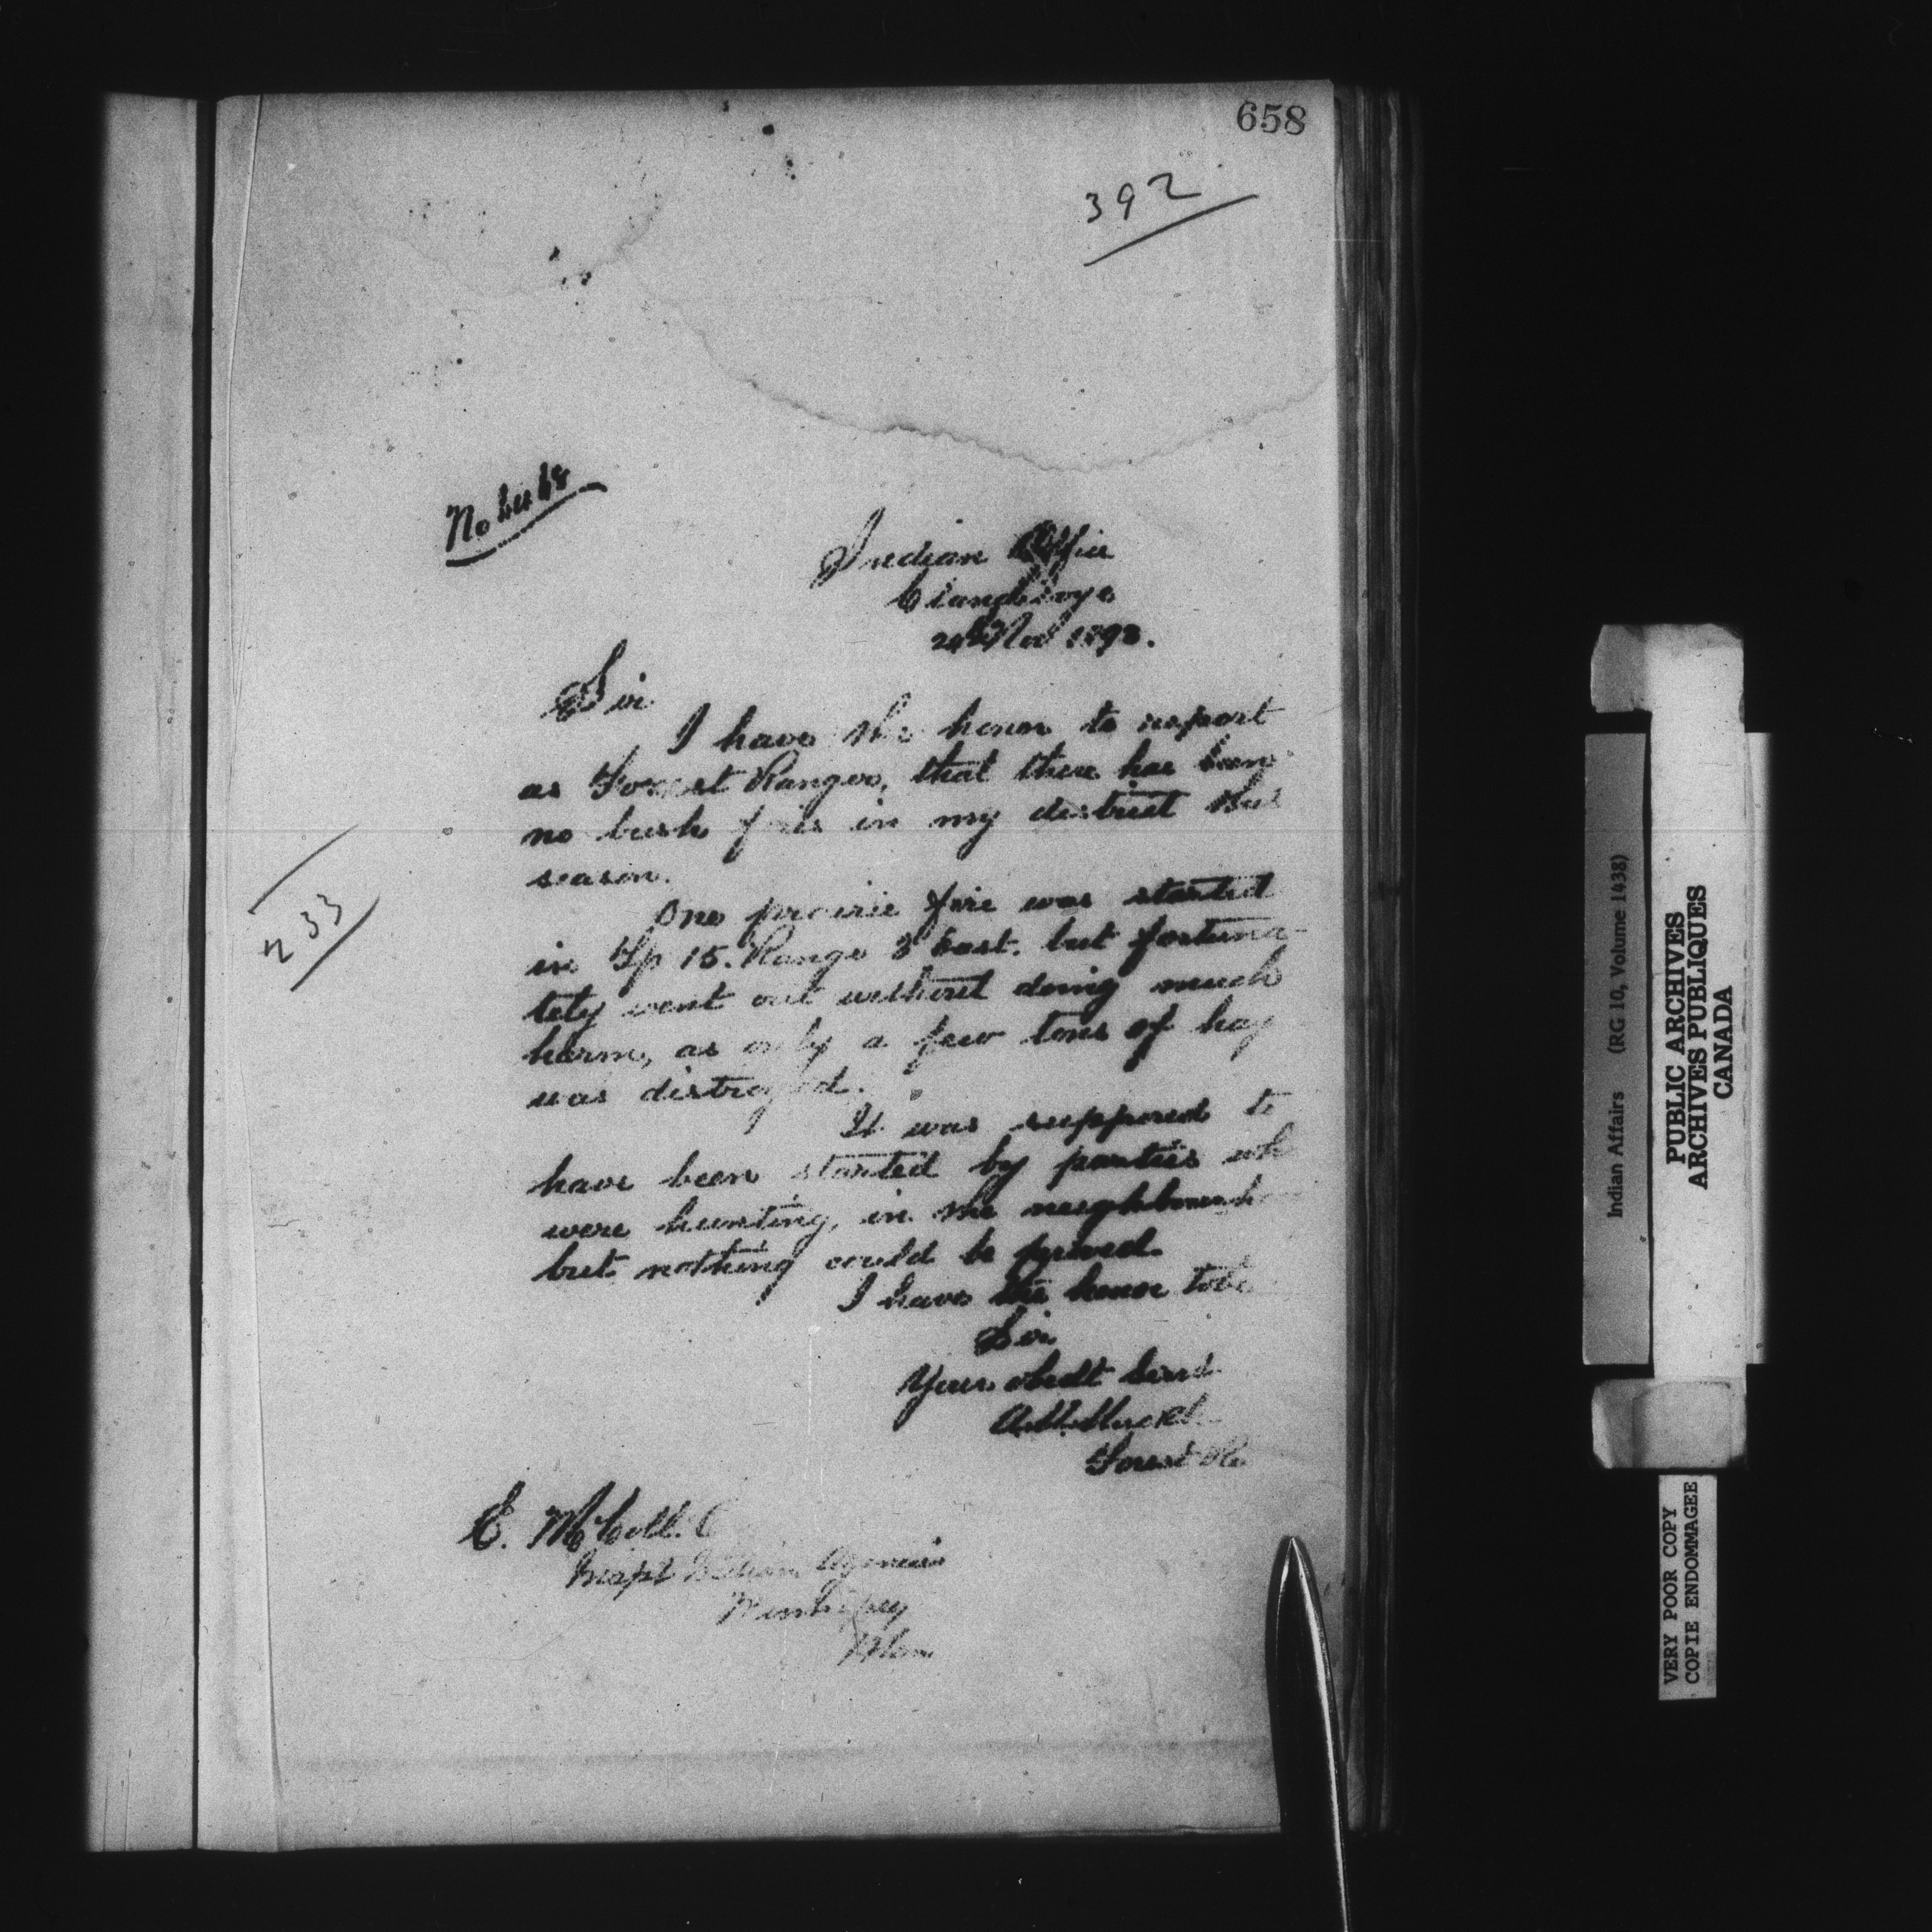 658
392
No
Indian Office
Clandeboye
Nov 1893.
Sir
I have the honor to report
as Forest Ranger, that there has been
no bush fires in my district this
season.
233
One prairie fire was started
in Tp 15. Range 3 East. but fortuna-
tely went out without doing much
harm, as only a few tons of hay
was distroyed.
It was supposed to
have been started by parties who
were hunting, in the neighbourh
but nothing could be proved.
I have the honor to be
Sir
Your obedt Servt
A.M. Muckle
Forest Ra
E. McColl.
Inspt Indian Agencies
Winnipeg
Man
Indian Affairs (RG 10, Volume 1438)
PUBLIC ARCHIVES
ARCHIVES PUBLIQUES
CANADA
VERY POOR COPY
COPIE ENDOMMAGEE